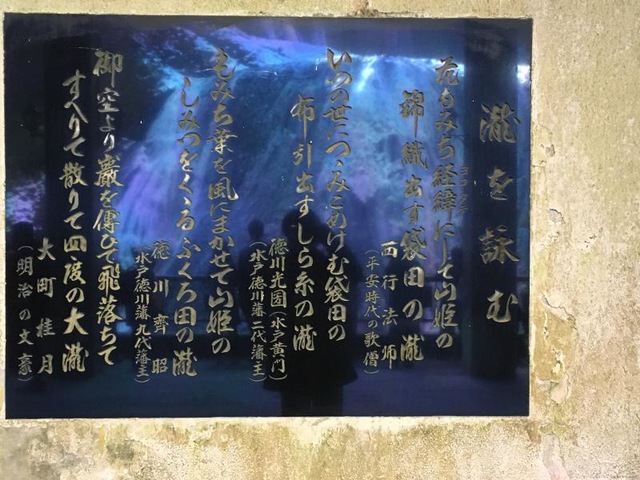 瀧を詠む
花もみち経緯にして山姫の
ヨコタテ
錦織出す袋田の瀧
西行法師
(平安時代の歌僧)
いつの世につゝみこめけむ袋田の
布引出すしら糸の瀧
徳川光圀(水戸黄門)
(水戸徳川藩二代藩主)
もみち葉を風にまかせて山姫の
しみつをくゝるふくろ田の瀧
徳川齊昭
(水戸徳川藩九代藩主)
御空より巖を傳ひて飛落ちて
すへりて散りて四度の大瀧
大町桂月
(明治の文豪)